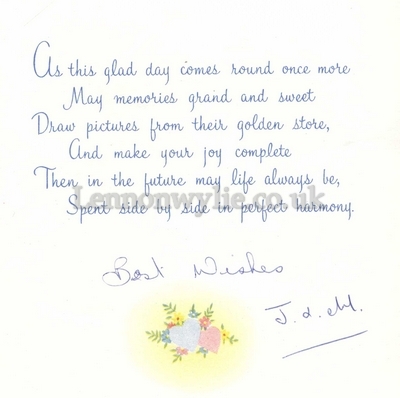 As this glad day comes round once more
May memories grand and sweet
Draw pictures from their golden store,
And make your joy complete
Then in the future may life always be,
Lennonwylie.co.uk
Spent side by side in perfect harmony.
Best Wishes
J. & M.